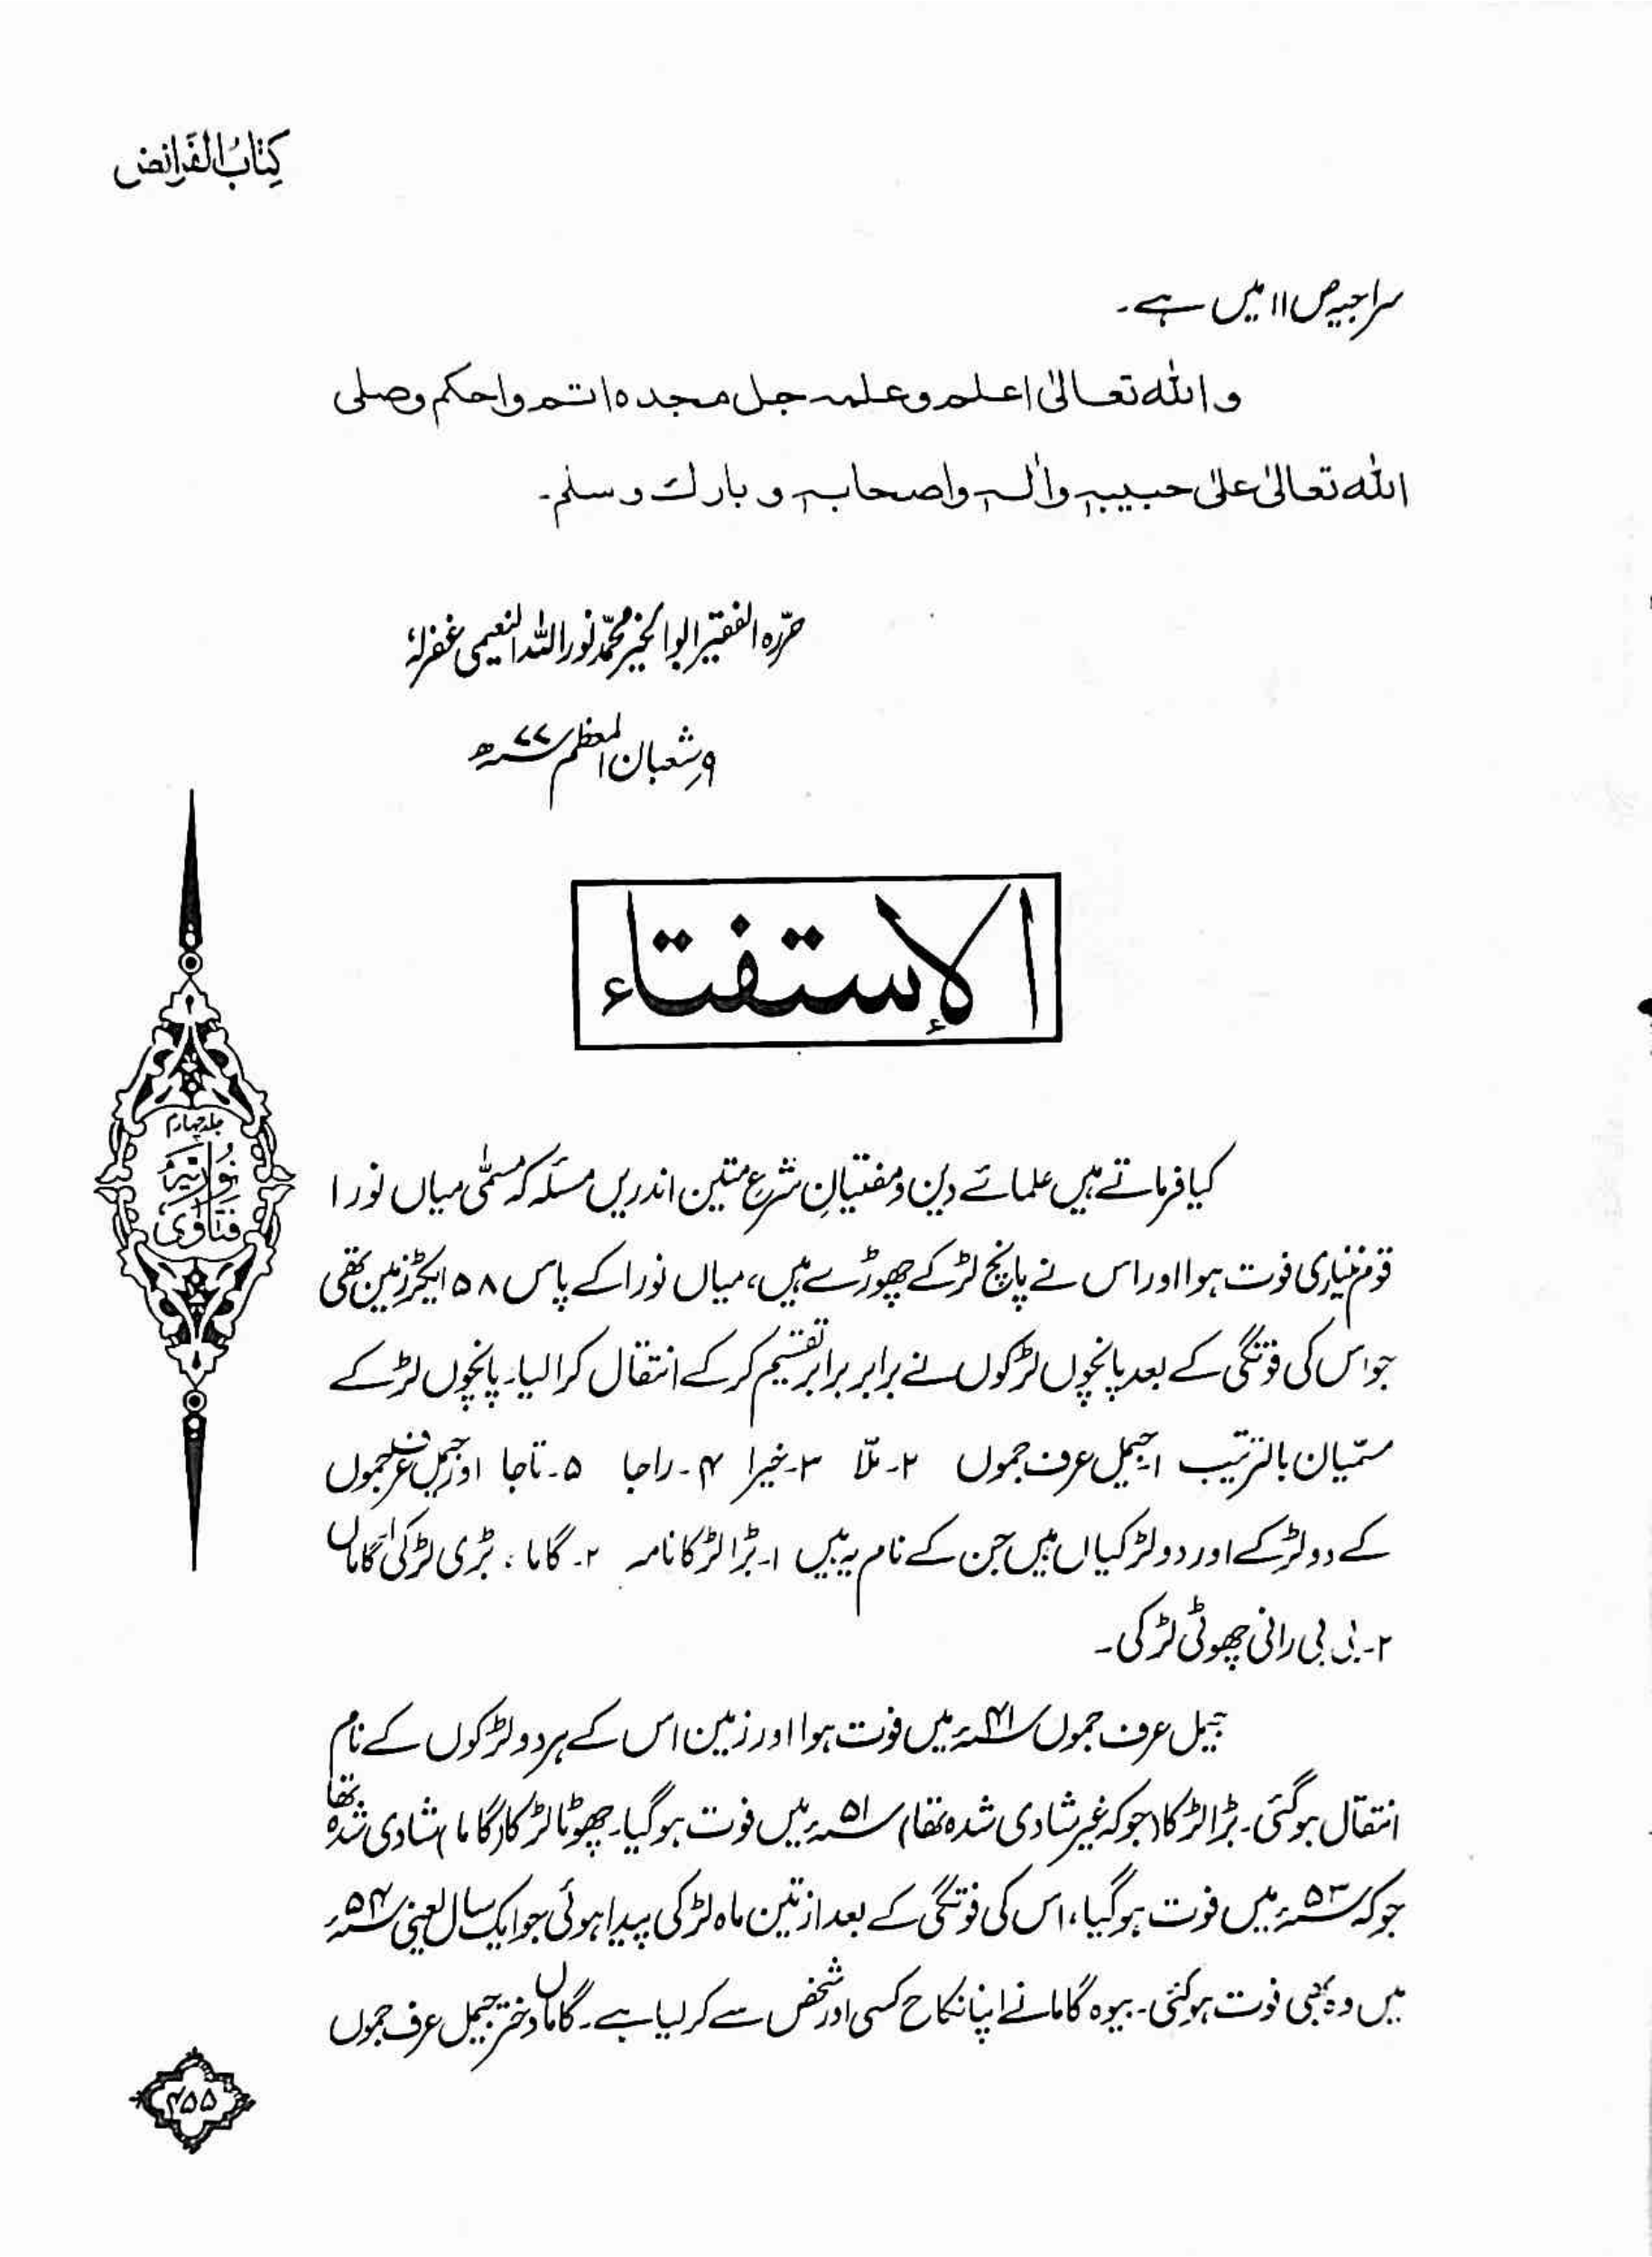 کِتَابُ الفَرائض
سراجیہ ص ۱۱ میں ہے۔
واللہ تعالیٰ اعلم وعلمہ جل مجدہ اتم واحکم وصلی
اللہ تعالیٰ علیٰ حبیبہٖ واٰلہٖ واصحابہٖ و بارک وسلم۔
حرّرہ الفقیر ابوالخیر محمّد نور اللہ النعیمی غفرلہٗ
۹ شعبان المعظم ۷۷ھ
الاِستفتاء
کیا فرماتے ہیں علمائے دین و مفتیانِ شرع متین اندریں مسئلہ کہ مسمّٰی میاں نورا
قوم فوت ہوا اور اس نے پانچ لڑکے چھوڑے ہیں، میاں نورا کے پاس ۵۸ ایکڑ زمین تھی
جو اس کی فوتگی کے بعد پانچوں لڑکوں نے برابر برابر تقسیم کر کے انتقال کرا لیا۔ پانچوں لڑکے
مسمّیان بالترتیب ۱۔ جیمل عرف جموں ۲۔ ملّا ۳۔ خیرا ۴۔ راجا ۵۔ تاجا اور جیمل عرف جموں
کے دو لڑکے اور دو لڑکیاں ہیں جن کے نام یہ ہیں ۱۔ بڑا لڑکا نامہ ۲۔ گاما ، بڑی لڑکی ۱۔ گاماں
۲۔ بی بی رانی چھوٹی لڑکی۔
جیمل عرف جموں ۴۱ء میں فوت ہوا اور زمین اس کے ہر دو لڑکوں کے نام
انتقال ہو گئی۔ بڑا لڑکا (جو کہ غیر شادی شدہ تھا) ۵۱ء میں فوت ہو گیا۔ چھوٹا لڑکا (گاما) شادی شدہ تھا
جو کہ ۵۳ء میں فوت ہو گیا، اس کی فوتگی کے بعد از تین ماہ لڑکی پیدا ہوئی جو ایک سال یعنی ۵۴ء
میں وہ بھی فوت ہو گئی۔ بیوہ گاما نے اپنا نکاح کسی اور شخص سے کر لیا ہے۔ گاماں دختر جیمل عرف جموں
جلد چہارم
فتاویٰ نوریہ
۴۵۵